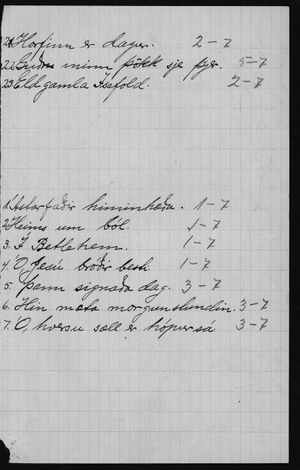 21 Horfinn er dagur. 2-7
22 Guðu minn þökk sje þjer. 5-7
23 Eldgamla Ísafold. 2-7
1. Ástarfaðir himinhæða. 1-7
2 Heims um ból. 1-7
3. Í Betlehem. 1-7
4. Ó Jesú bróðir besti 1-7
5. Þann signaða dag. 3-7
6. Hin mæta morgunstundin. 3-7
7. Ó, hversu sæll er hópur sá 3-7